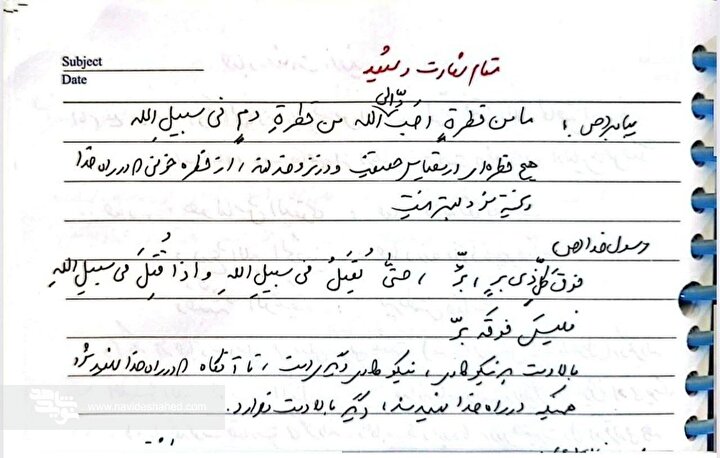 Subject
Date
مقام شهادت و شهید
پیامبر(ص): ما من قطرةٍ احَبُّ الَی الله من قطرةِ دمٍ فی سبیلِ الله
هیچ قطره‌ای در مقیاس حقیقت و در نزد خدا، از قطره خونی که در راه خدا
ریخته شود بهتر نیست
رسول خدا(ص)
فوقَ کلِّ ذی بِرٍ، بِرٌّ، حتّی یُقتَلُ فی سبیلِ اللهِ و اذا قُتِلَ فی سبیلِ اللهِ
فلیسَ فوقَه بِرّ
بالادست هر نیکوکاری، نیکوکاری دیگری است، تا آنگاه که در راه خدا شهید شود
همینکه در راه خدا شهید شد، دیگر بالادست ندارد.
www.navideshahed.com